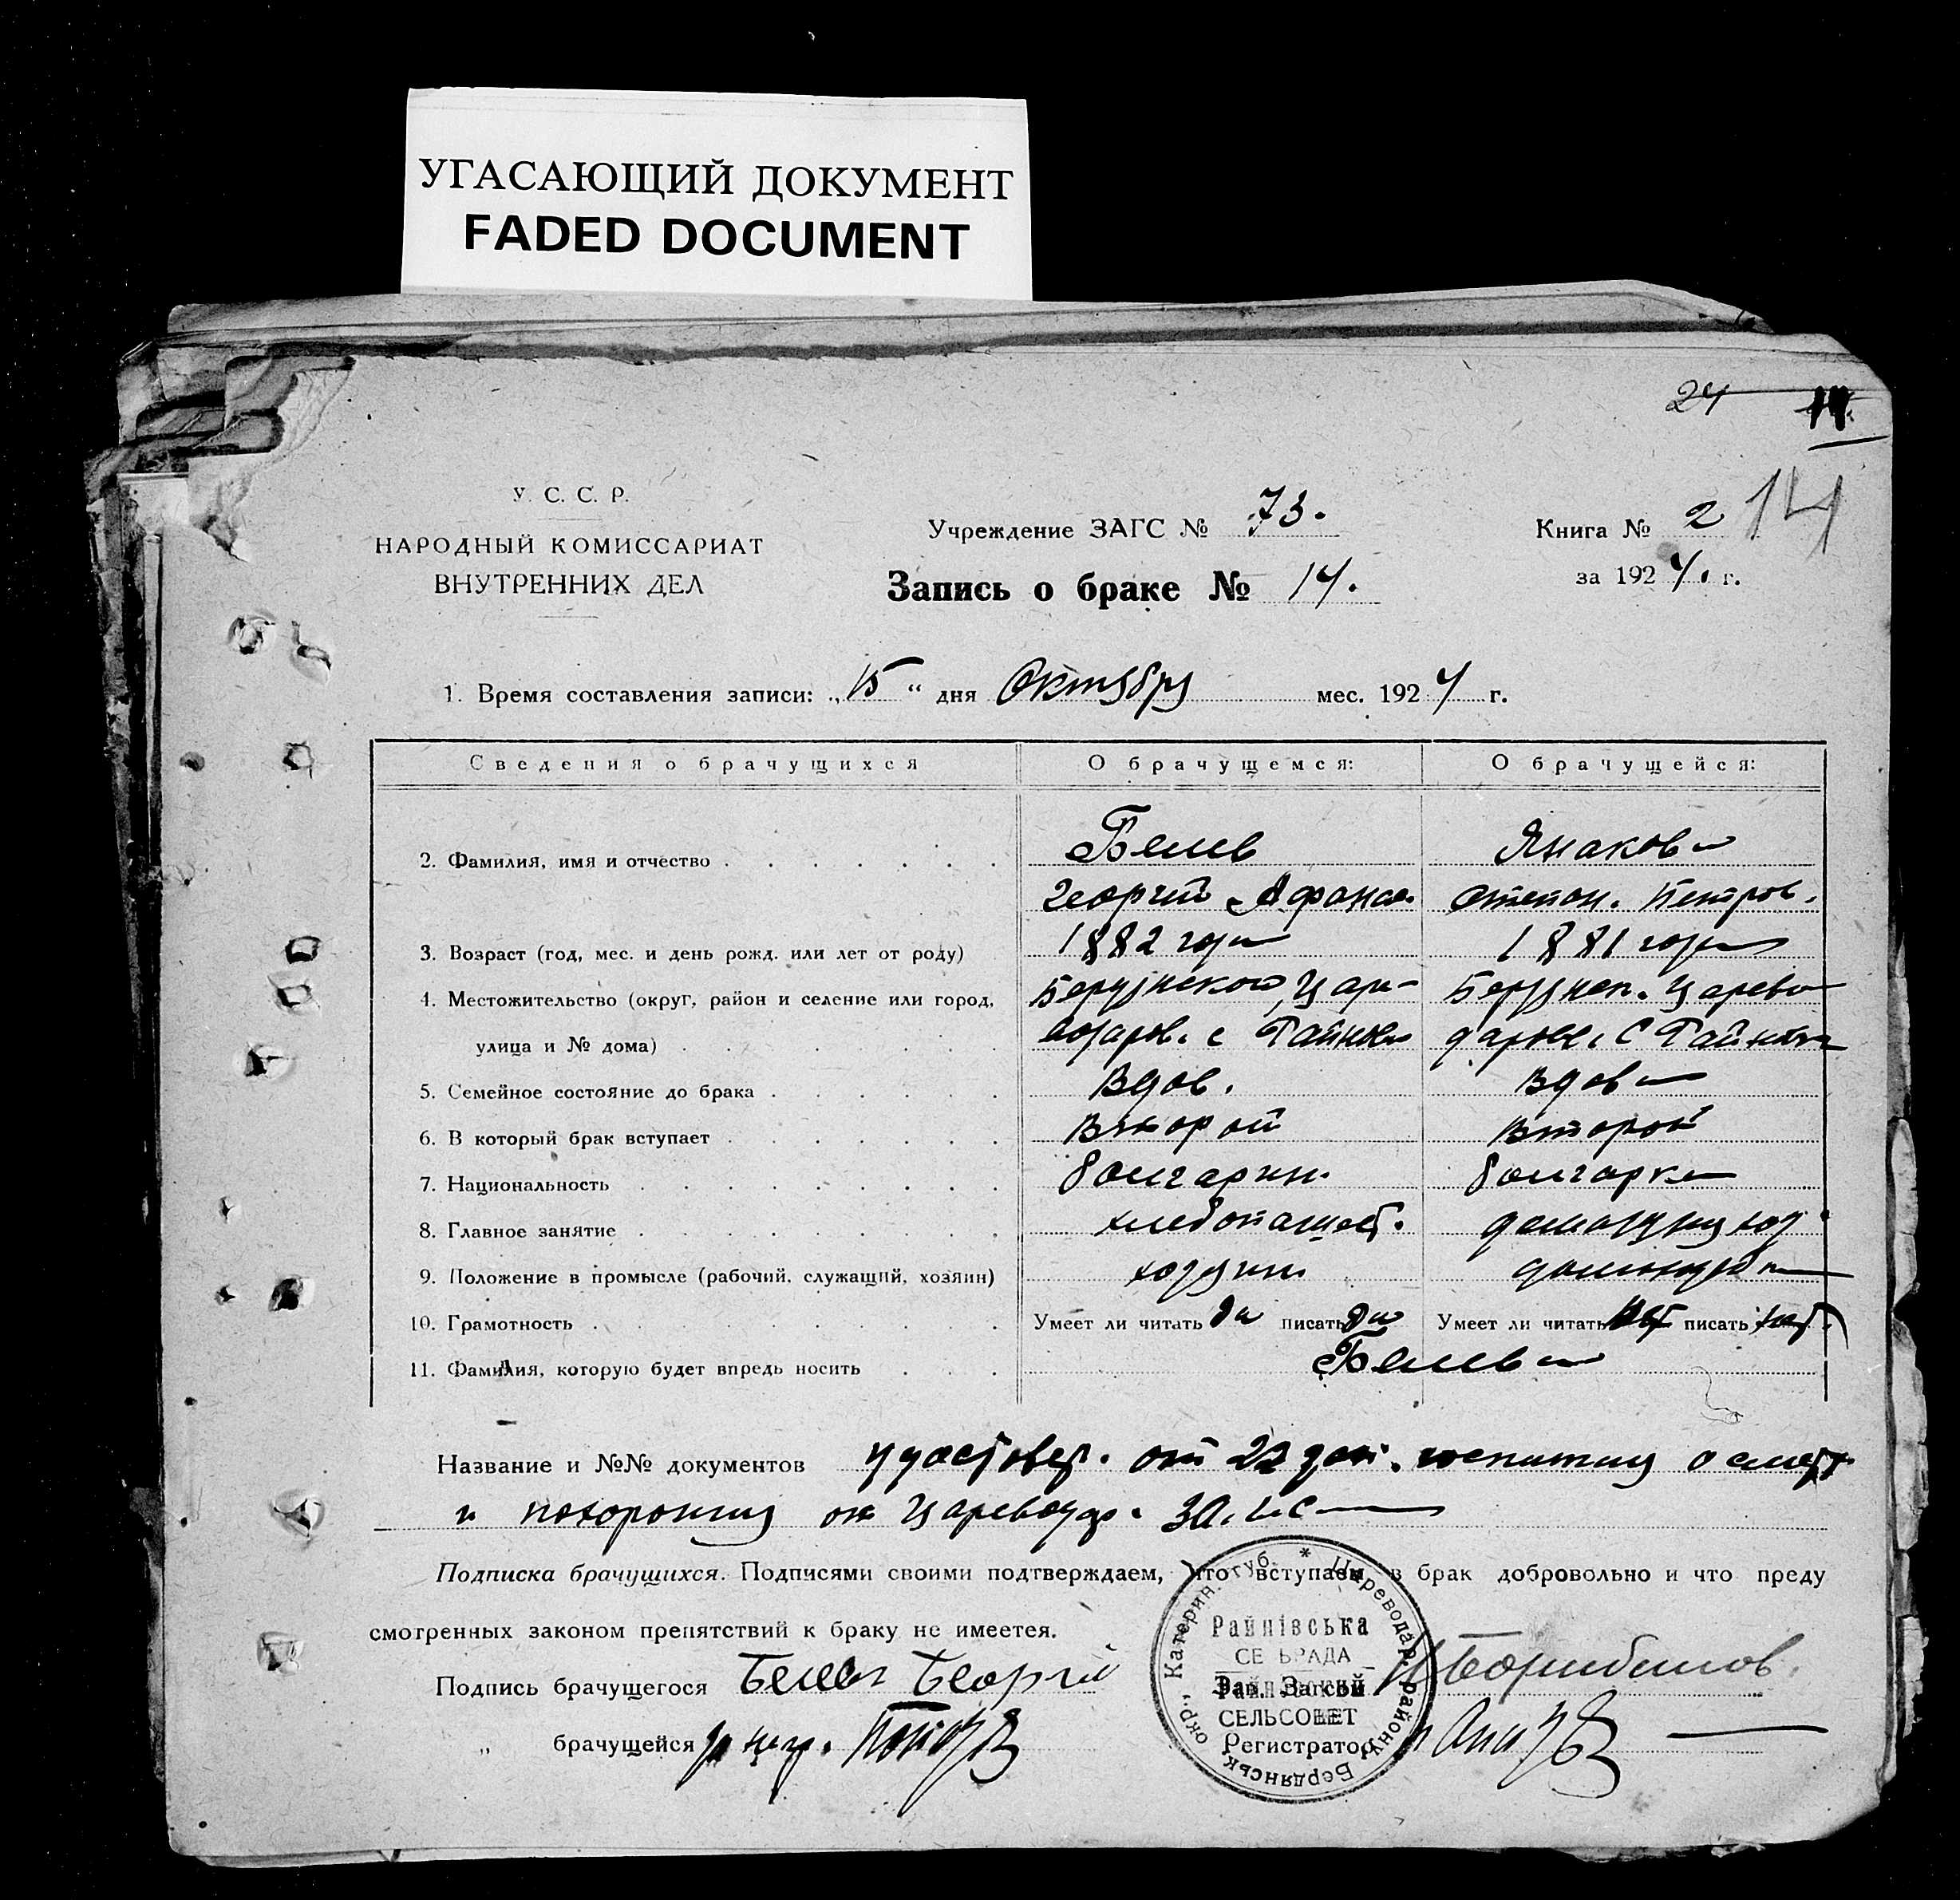 УГАСАЮЩИЙ ДОКУМЕНТ
FADED DOCUMENT
24 14
У. С. С. Р.
НАРОДНЫЙ КОМИССАРИАТ
ВНУТРЕННИХ ДЕЛ
Учреждение ЗАГС № 73.
Запись о браке № 14.
Книга № 2 14
за 1924. г.
1. Время составления записи: „15" дня Октября мес. 1924 г.
Сведения о брачущихся О брачущемся: О брачущейся:
2. Фамилия, имя и отчество Белев Янакова
Георгий Афанас. Степан. Петров.
3. Возраст (год, мес. и день рожд. или лет от роду) 1882 года 1881 года
4. Местожительство (округ, район и селение или город, Бердянского Царе- Бердянск. Царево
улица и № дома) водаров. с Райновка даровск. С Райновка
5. Семейное состояние до брака Вдов. Вдова
6. В который брак вступает Второй Второй
7. Национальность болгарин. болгарка
8. Главное занятие хлебопашест.
9. Положение в промысле (рабочий, служащий, хозяин) хозяин домохозяйка
10. Грамотность Умеет ли читать да писать да Умеет ли читать нет писать нет.
11. Фамилия, которую будет впредь носить Белева
Название и №№ документов удостовер. от 22 госпиталя о смерт.
и похорония от Царевода. ЗАГС
Подписка брачущихся. Подписями своими подтверждаем, что вступаем в брак добровольно и что преду
смотренных законом препятствий к браку не имеется.
Подпись брачущегося Белев Георгий
„ брачущейся
Катерин. губ. * Царевода́р. району Бердянськ. окр.,
Райнівська
СЕЛЬРАДА
Зав. Загсом
СЕЛЬСОВЕТ
Регистратор